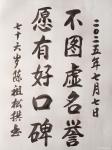 二〇二五年七月七日
不图虚名誉
愿有好口碑
七十六岁陈祖松撰书